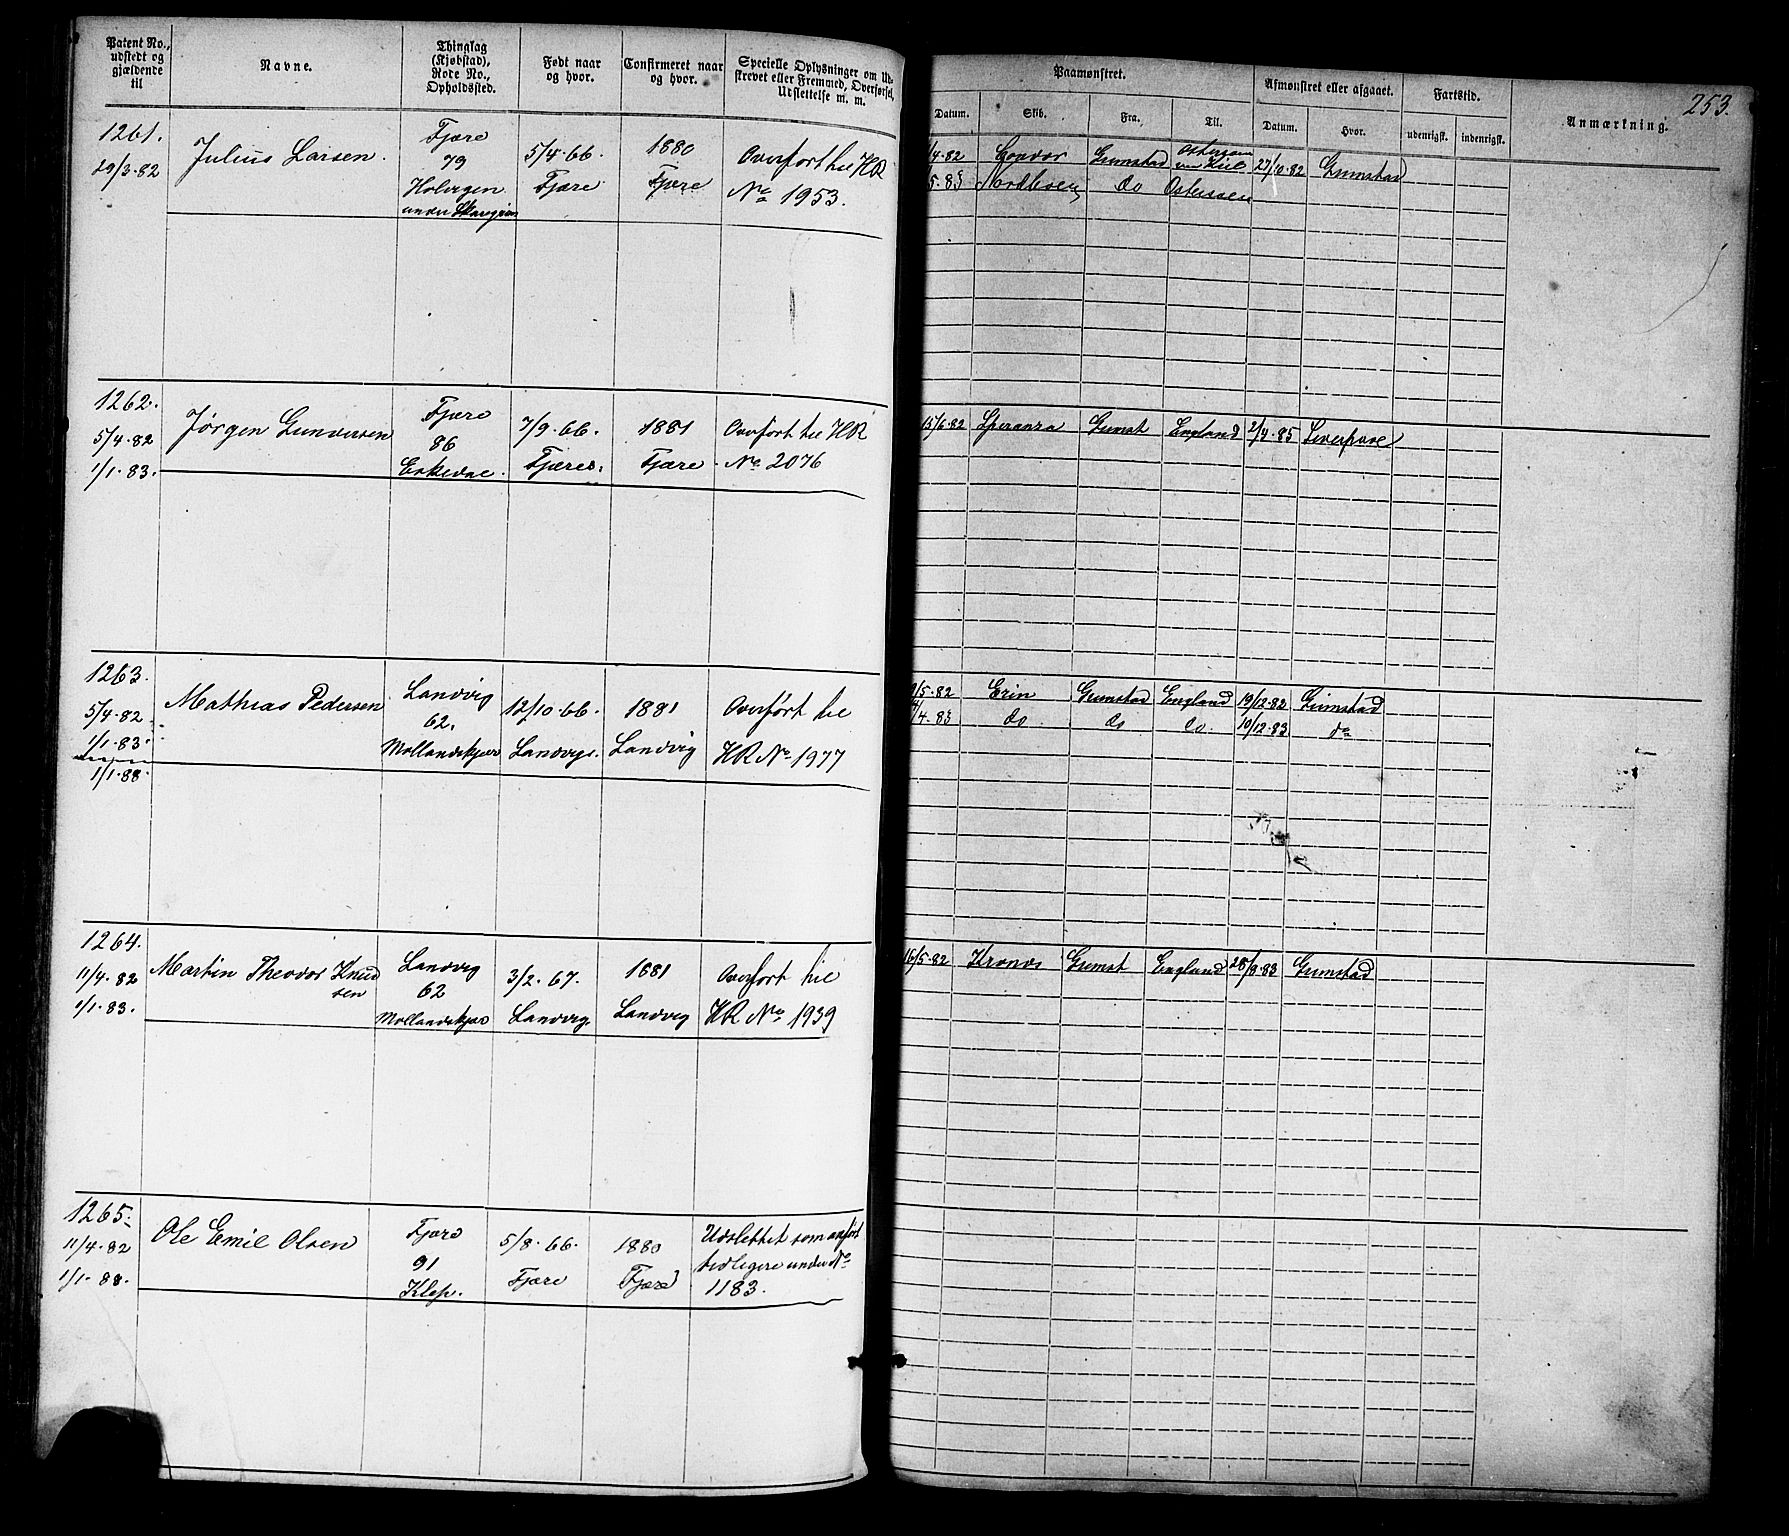 253.
Patent No., udstedt og gjældende til
Navne.
Thinglag (Kjøbstad), Rode No., Opholdssted.
Født naar og hvor.
Confirmeret naar og hvor.
Specielle Oplysninger om Ud- skrevet eller Fremmed, Overførsel, Udslettelse m. m.
Paamønstret.
Afmønstret eller afgaaet.
Fartstid.
Anmærkning.
Datum. Skib. Fra. Til. Datum. Hvor. udenrigsk. indenrigsk.
1261. Julius Larsen. Fjære 5/4-66. 1880 Overført til HR
29/3-82 79 Fjære Fjære No 1953.
Holvigen
under
/4-82 Grimstad 27/10 82 Grimstad
5-83 do Østersøen
1262. Jørgen Gundersen Fjære 7/9-66. 1881 Overført til HR
5/4-82 86 Fjære. Fjære. No 2076
1/1-83.
15/6-82 Speranza Grmst England 2/4-85 Liverpool
1263. Mathias Pedersen Landvig 12/10-66. 1881 Overført til
5/4-82 62. Landvig. Landvig HR No 1977
1/1-83. Mollandskjær
1/1-88.
/5-82 Erin Grimstad England 19/12-82 Grimstad
/4-83 do do do. 10/12-83 do
1264. Martin Theodor Knud Landvig 3/2-67. 1881 Overført til
11/4-82 sen 62 Landvig. Landvig HR No 1939
1/1-83. Mollandskjær
16/5-82 Kronos Grmst England 28/9-83 Grimstad
1265. Ole Emil Olsen Fjære 5/8-66. 1880 Udslettet som anført
11/4-82 91 Fjære Fjære tidligere under No
1/1-88. Klep. 1183.